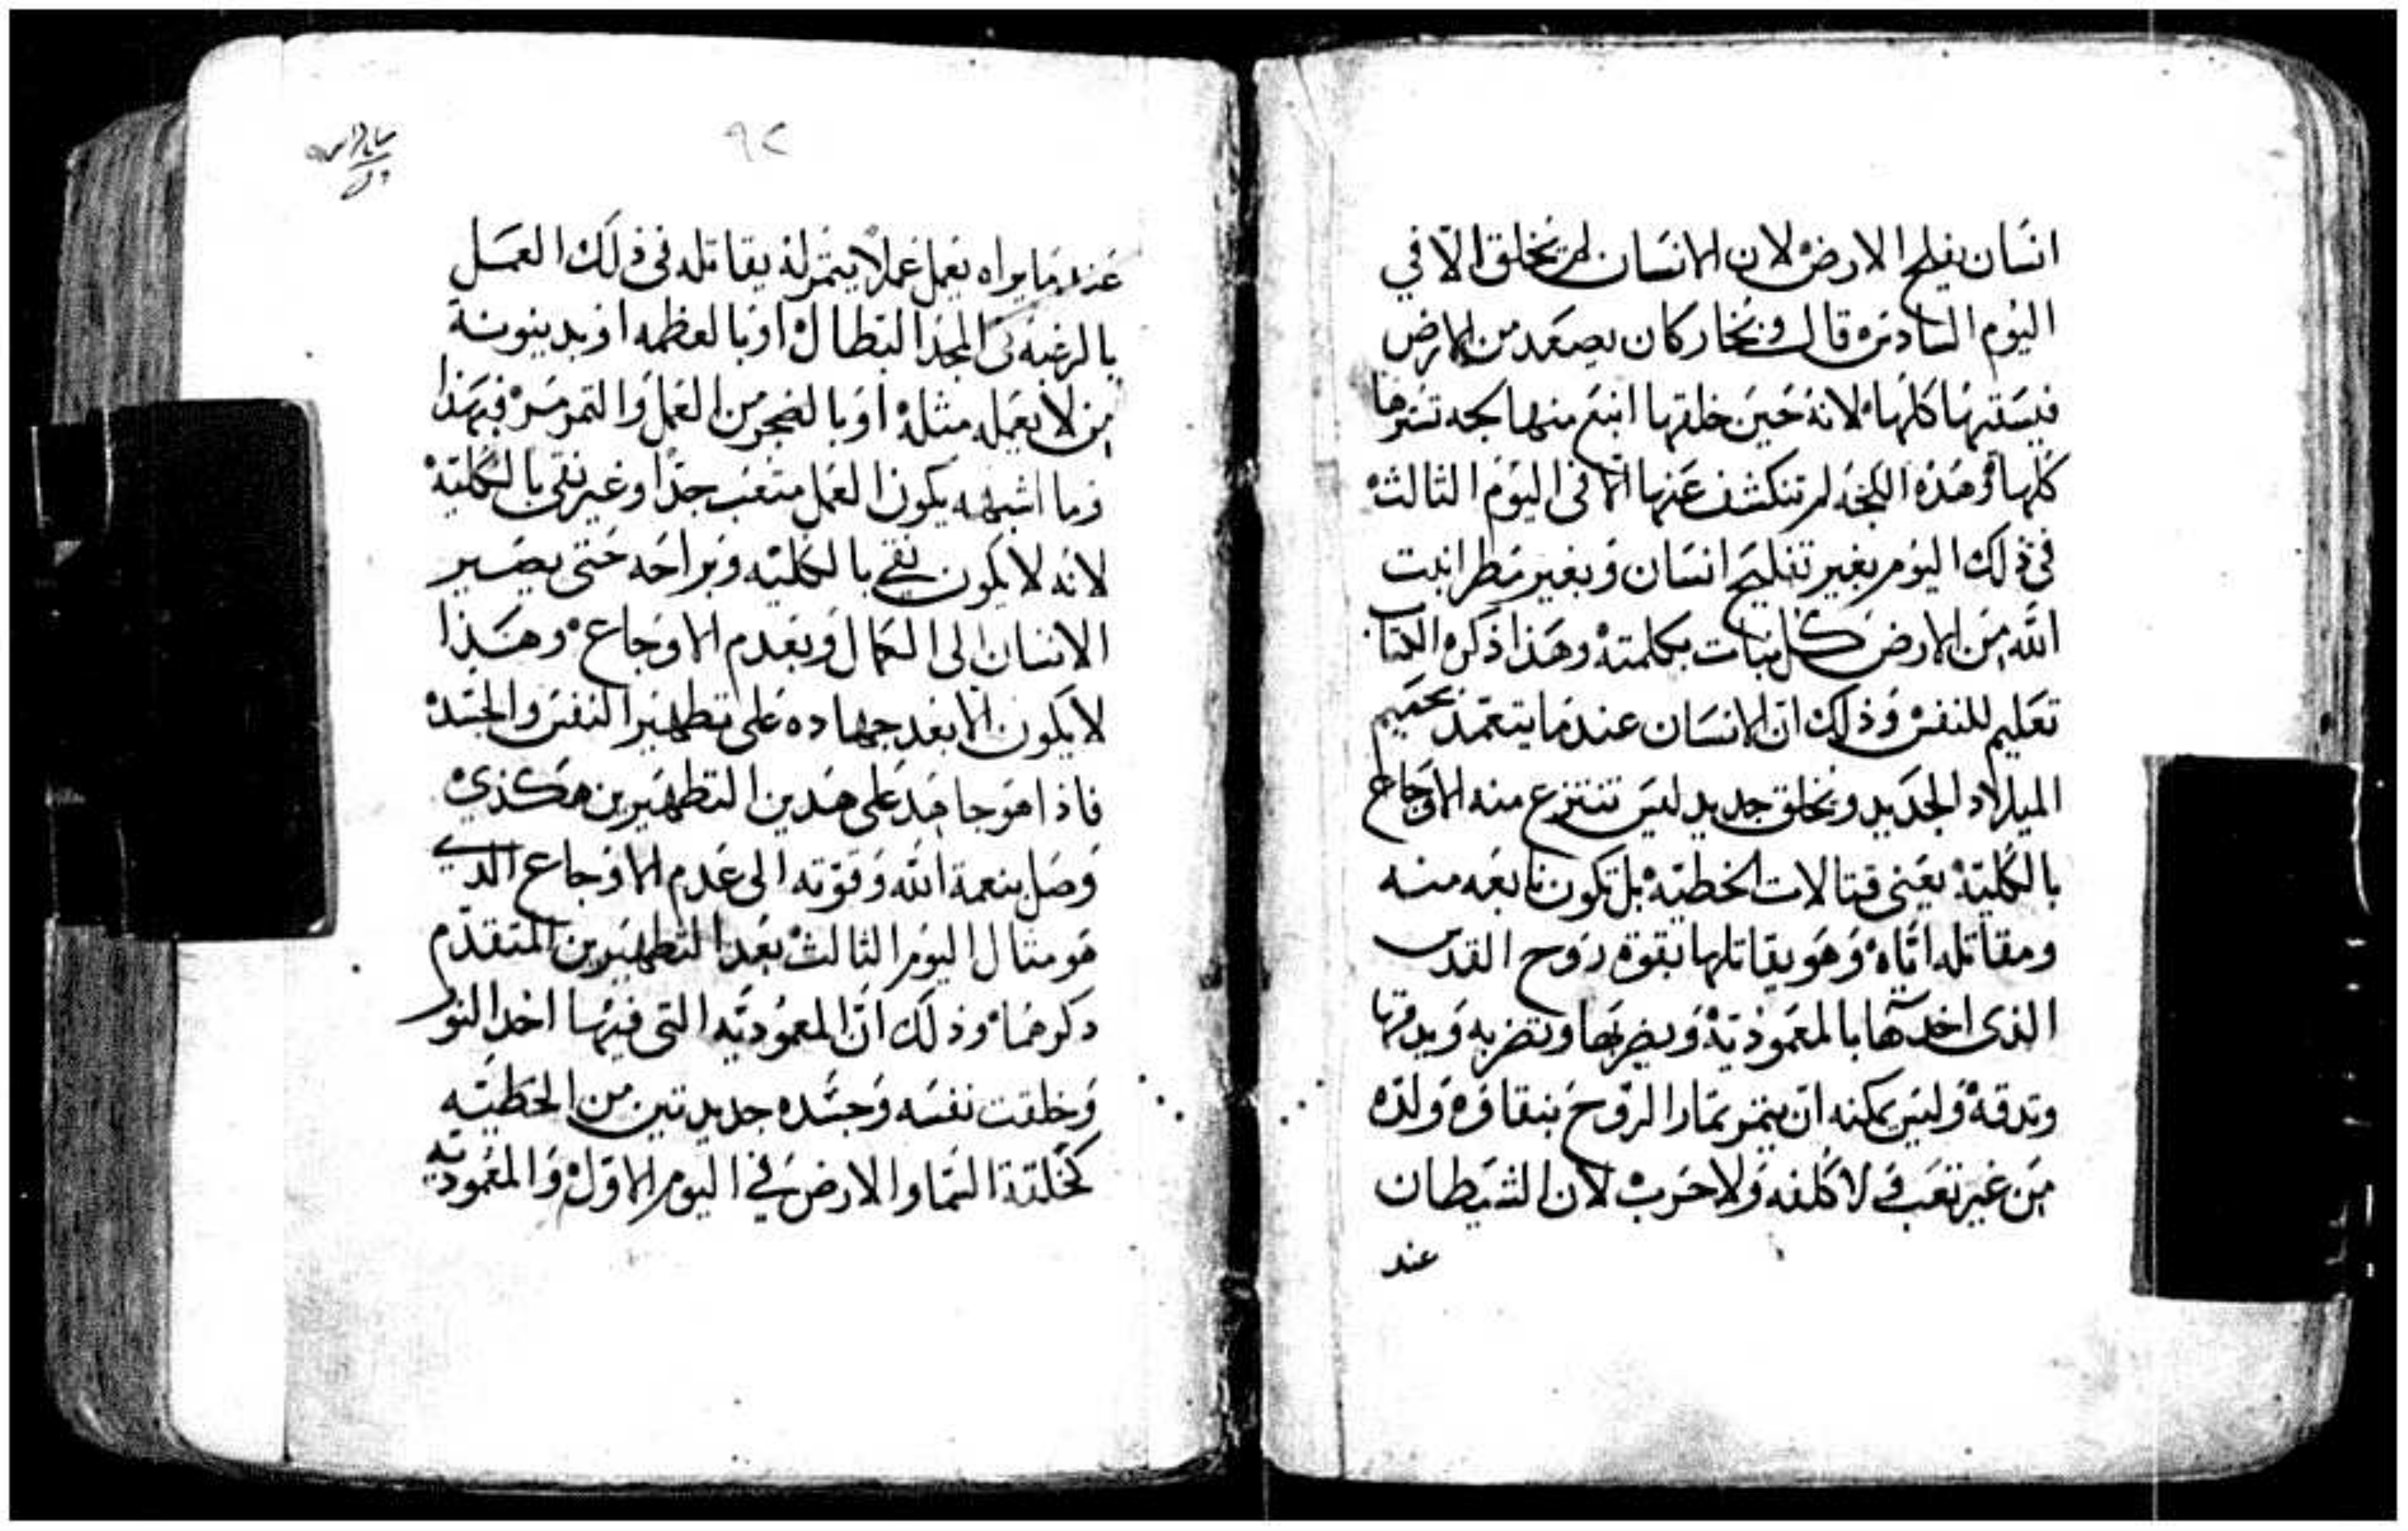 انسان يفلح الارض لان الانسان لم يخلق الا في
اليوم السادس قال وبخار كان يصعد من الارض
فيسقيها كلها لانه حين خلقها انبع منها لجه تسترها
كلها وهذه اللجه لم تنكشف عنها الا في اليوم الثالث
في ذلك اليوم بغير تفليح انسان وبغير مطر انبت
الله من الارض كل نبات بكلمته وهذا ذكره الكتاب
تعليم للنفس وذلك ان الانسان عندما يتعمد بحميم
الميلاد الجديد ويخلق جديد ليس تنتزع منه الاوجاع
بالكلية يعني قتالات الخطية بل تكون نابعه منه
ومقاتله اياه وهو يقاتلها بقوة روح القدس
الذي اخدها بالمعمودية ويضربها وتضربه ويدقها
وتدقه وليس يمكنه ان يتمر تمار الروح بنقاوه ولده
من غير تعب ولا كلفه ولا حرب لان الشيطان
عند
٩٢
عندما يراه يعمل عملا يتمر له يقاتله في ذلك العمل
بالرغبه في المجد البطال او بالعظمه او بدينونة
من لا يعمله مثله او بالضجر من العمل والتمرمر فبهذا
وما اشبهه يكون العمل متعب جدا وغير نقي بالكلية
لانه لا يكون نقي بالكليه وبراحه حتى يصير
الانسان الى الكمال وبعدم الاوجاع وهذا
لا يكون الا بعد جهاده على تطهير النفس والجسد
فاذا هو جاهد على هدين التطهيرين هكذي
وصل بنعمة الله وقوته الى عدم الاوجاع الدي
هو متال اليوم الثالث بعد التطهيرين المتقدم
دكرهما وذلك ان المعموديه التي فيها اخد النور
وخلقت نفسه وجسده جديدتين من الخطيه
كخلقة السما والارض في اليوم الاول والمعموديه